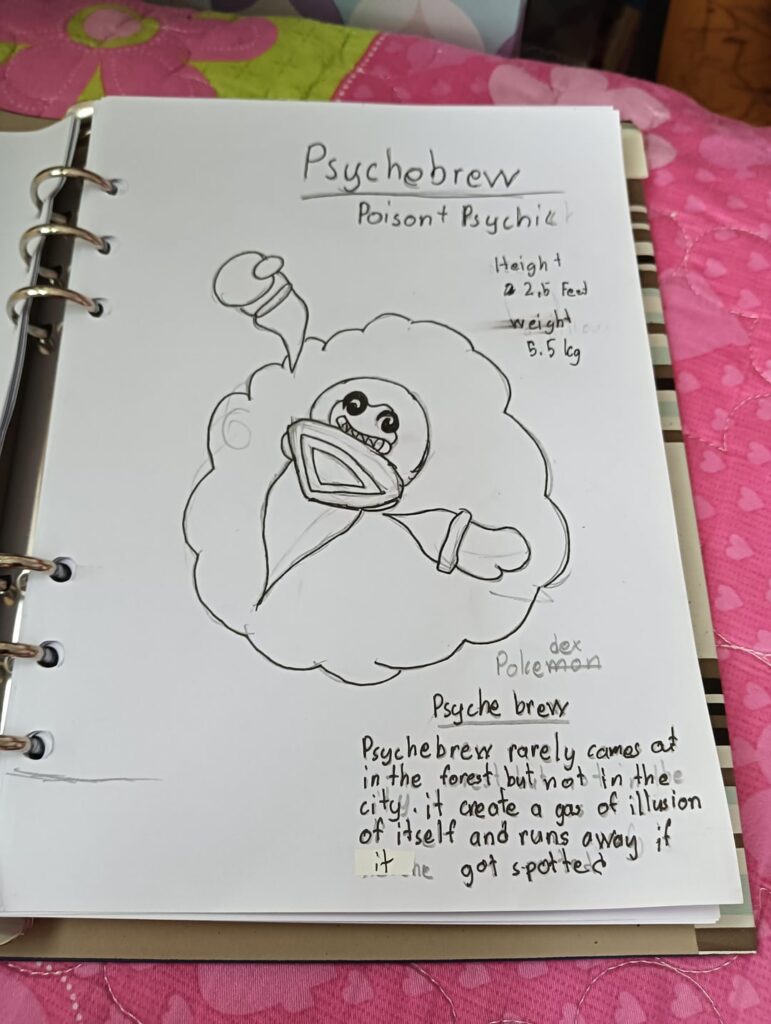 Psychebrew
Poison+ Psychic
Height
2,5 Feet
weight
5.5 kg
Pokemon
dex
Psyche brew
Psychebrew rarely comes out
in the forest but not in the
city. it create a gas of illusion
of itself and runs away if
it got spotted